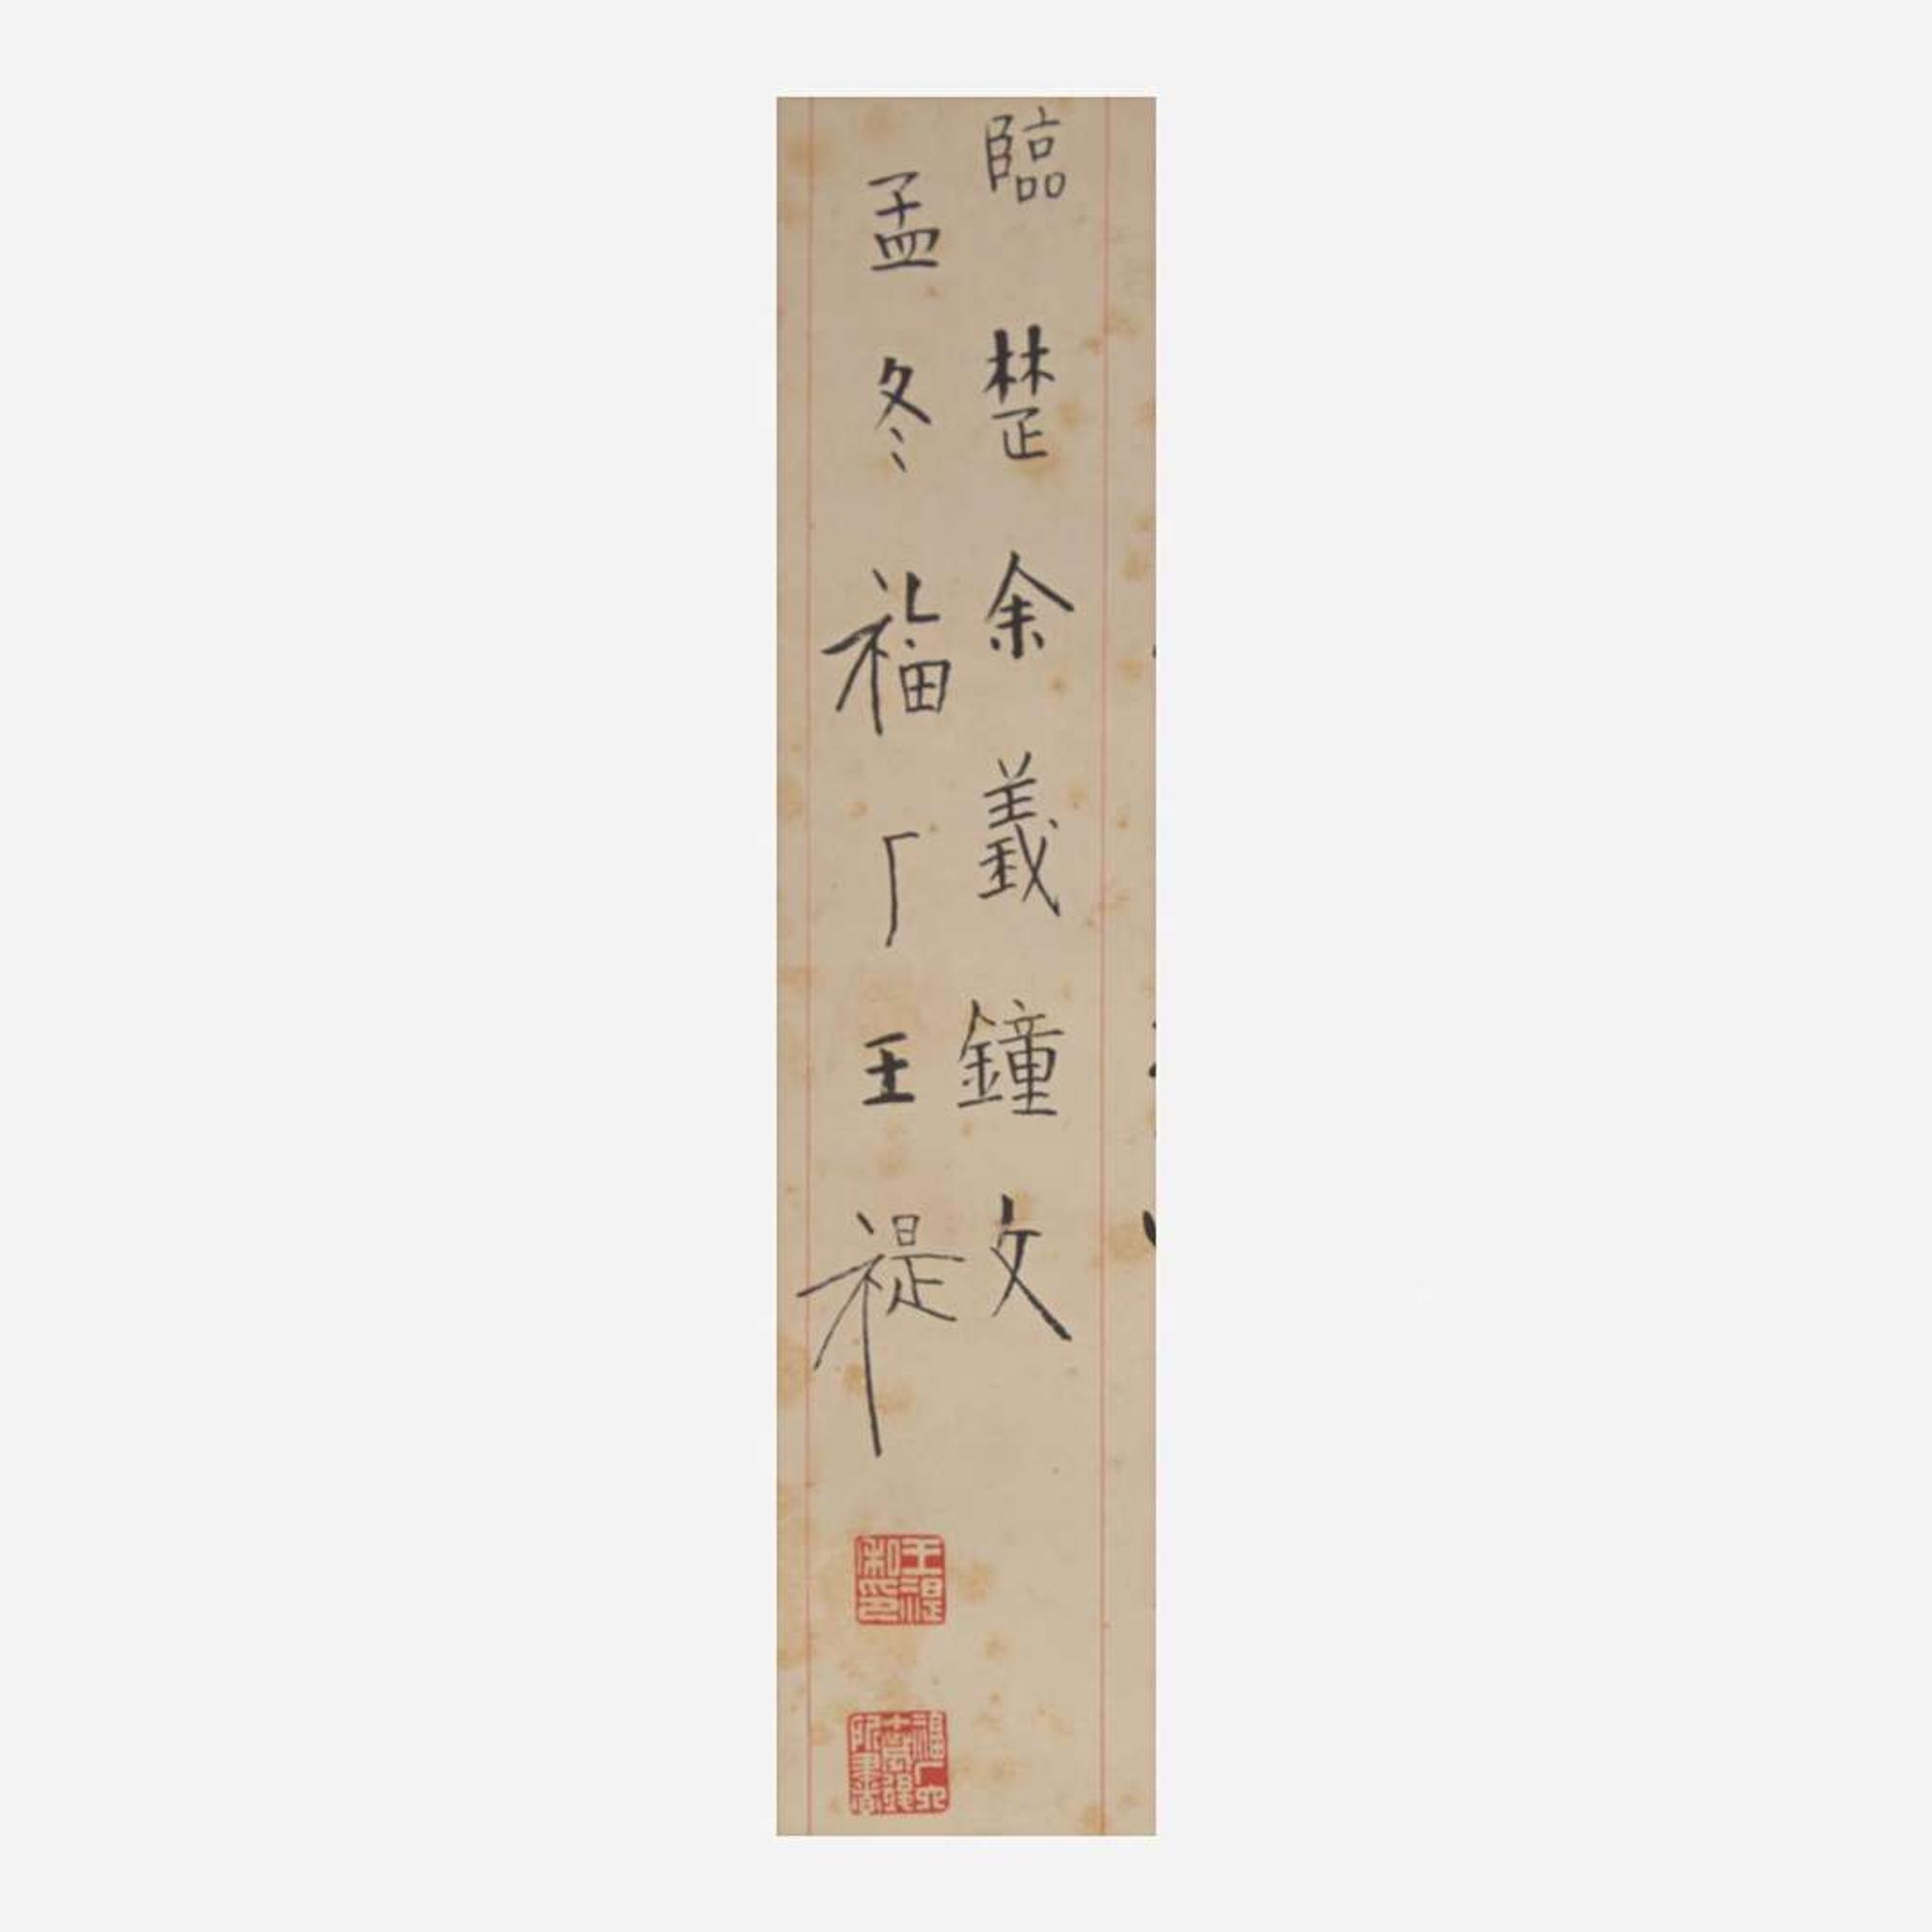 臨楚余義鐘文
孟冬福厂王禔
王禔私印
福厂六十歲後所書